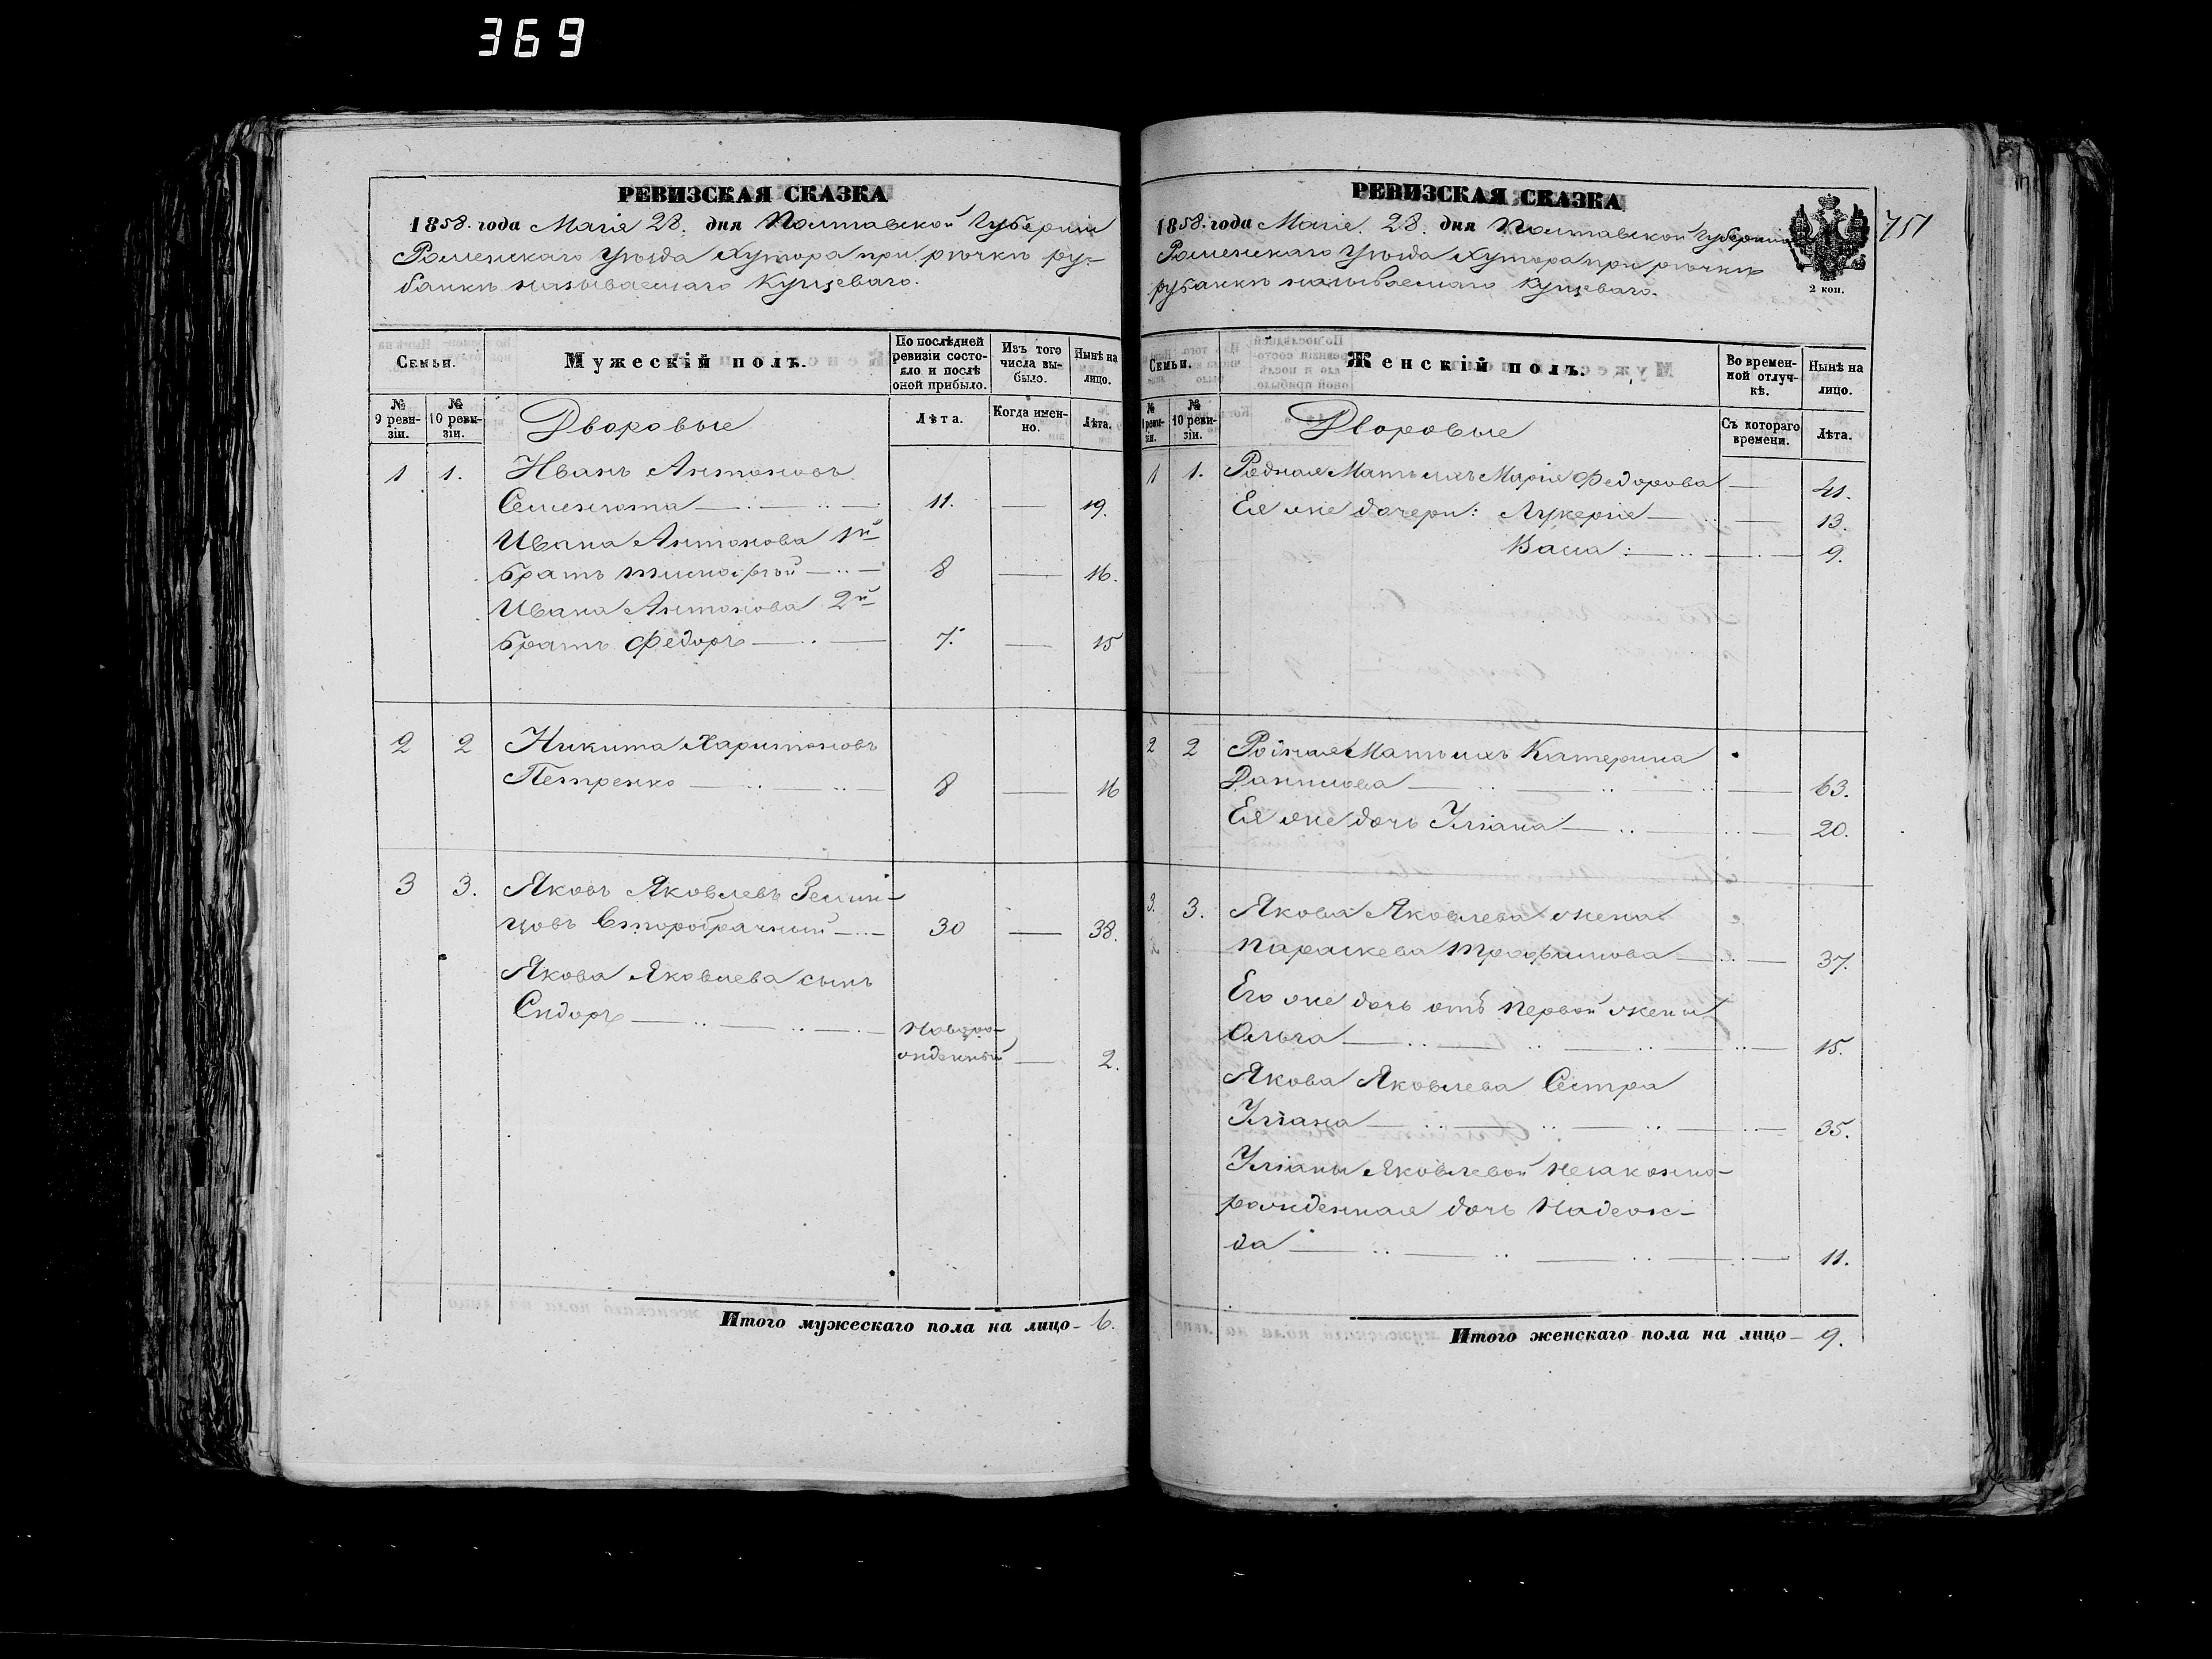 369
РЕВИЗСКАЯ СКАЗКА
1858. года Маія 28. дня Полтавской Губерніи
Роменскаго Уѣзда Хутора при рѣчкѣ ру-
банкѣ называемаго Купцеваго.
Семьи.
Мужескій полъ.
По послѣдней ревизіи состо-яло и послѣ оной прибыло.
Изъ того числа вы-было.
Нынѣ на лицо.
№ 9 реви-зіи.
№ 10 реви-зіи.
Дворовые
Лѣта.
Когда имен-но.
Лѣта.
1 1. Иванъ Антоновъ
Семенюта 11. 19.
Ивана Антонова 1й
братъ 8 16.
Ивана Антонова 2й
братъ Федоръ 7. 15
2 2 Никита Харитоновъ
Петренко 8 16
3 3. Яковъ Яковлевъ Земин-
цовъ Второбрачный 30 38.
Якова Яковлева сынъ
Сидоръ Новоро-
жденный 2.
Итого мужескаго пола на лицо - 6.
РЕВИЗСКАЯ СКАЗКА
1858. года Маія. 28. дня Полтавской Губерніи
Роменскаго Уѣзда Хутора при рѣчкѣ
рубанкѣ называемаго Купцеваго.
2 коп.
751
Семьи.
Женскій полъ.
Во времен-ной отлуч-кѣ.
Нынѣ на лицо.
№ 9 реви-зіи.
№ 10 реви-зіи.
Дворовые
Съ котораго времени.
Лѣта.
1 1. Родная Мать ихъ Марія Федорова 41.
Ея же дочери: Лукерія 13.
Васа: 9.
2 2 Родная Мать ихъ Катерина
Данилова 63.
Ея же дочь Уліана 20.
3. 3. Якова Яковлева жена
Параскева Трофимова 37.
Его же дочь отъ первой жены
Ольга 15.
Якова Яковлева Сестра
Уліана 35.
Уліаны Яковлевой незаконно-
рожденная дочь Надеж-
да 11.
Итого женскаго пола на лицо - 9.